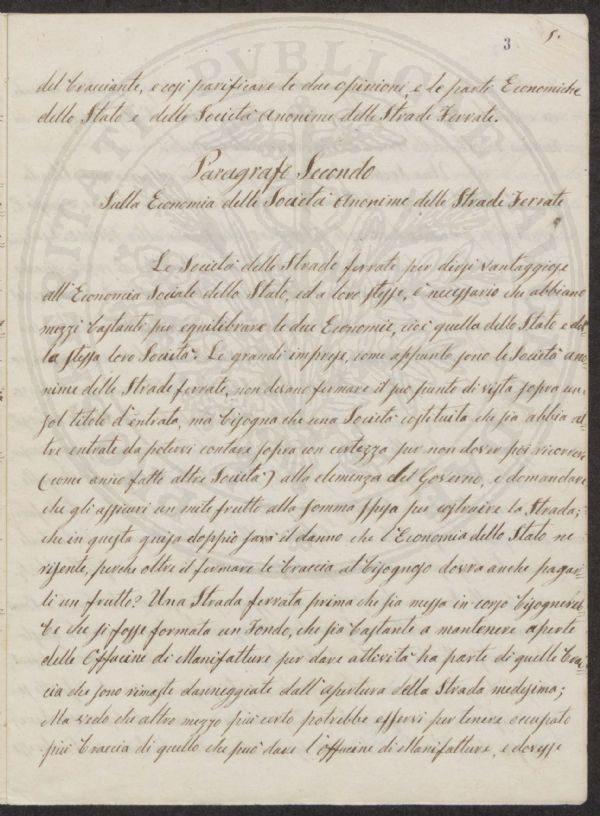 3 5.
del bracciante, e così parificare le due opinioni, e le parti Economiche
dello Stato e delle Società Anonime delle Strade Ferrate.
Paragrafo Secondo
Sulla Economia delle Società Anonime delle Strade Ferrate
Le Società delle Strade ferrate per dirsi vantaggiose
all'Economia Sociale dello Stato, ed a loro stesse, è necessario che abbiano
mezzi bastanti per equilibrare le due Economie, cioè quella dello Stato e del-
la stessa loro Società. Le grandi imprese, come appunto sono le Società Ano-
nime delle Strade ferrate, non devano fermare il suo punto di vista sopra un
sol titolo d'entrata, ma bisogna che una Società costituita che sia abbia al-
tre entrate da potervi contare sopra con certezza per non dover poi ricorrere
(come anno fatto altre Società) alla clemenza del Governo, e domandare
che gli assicuri un mite frutto alla somma spesa per costruire la Strada;
che in questa guisa doppio sarà il danno che l'Economia dello Stato ne
risente, perche oltre il fermare le braccia al bisognoso dovrà anche pagar-
li un frutto? Una Strada ferrata prima che sia messa in corso bisognereb-
be che si fosse formata un Fondo, che sia bastante a mantenere aperte
delle Officine di Manifatture per dare attività ha parte di quelle brac-
cia che sono rimaste danneggiate dall'apertura della Strada medesima;
Ma vedo che altro mezzo più certo potrebbe esservi per tenere occupato
più braccia di quello che può dare l'officine di Manifatture, e dovesse
PVBLICAE